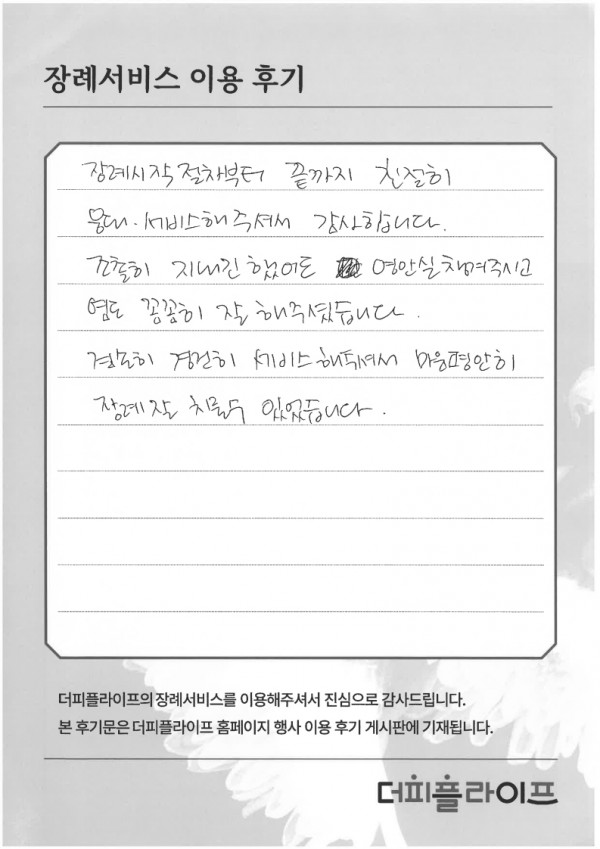 장례서비스 이용 후기
장례시작 절차부터 끝까지 친절히
응대·서비스해주셔서 감사합니다.
조촐히 지내긴 했어도 영안실 챙겨주시고
염도 꼼꼼히 잘 해주셨습니다.
겸손히 경건히 서비스해주셔서 마음평안히
장례 잘 치를수 있었습니다.
더피플라이프의 장례서비스를 이용해주셔서 진심으로 감사드립니다.
본 후기문은 더피플라이프 홈페이지 행사 이용 후기 게시판에 기재됩니다.
더피플라이프